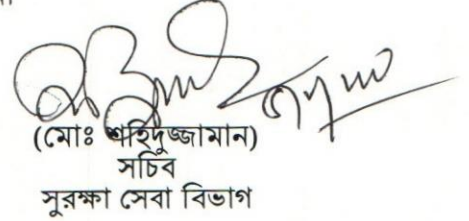 (মোঃ শহিদুজ্জামান)
সচিব
সুরক্ষা সেবা বিভাগ